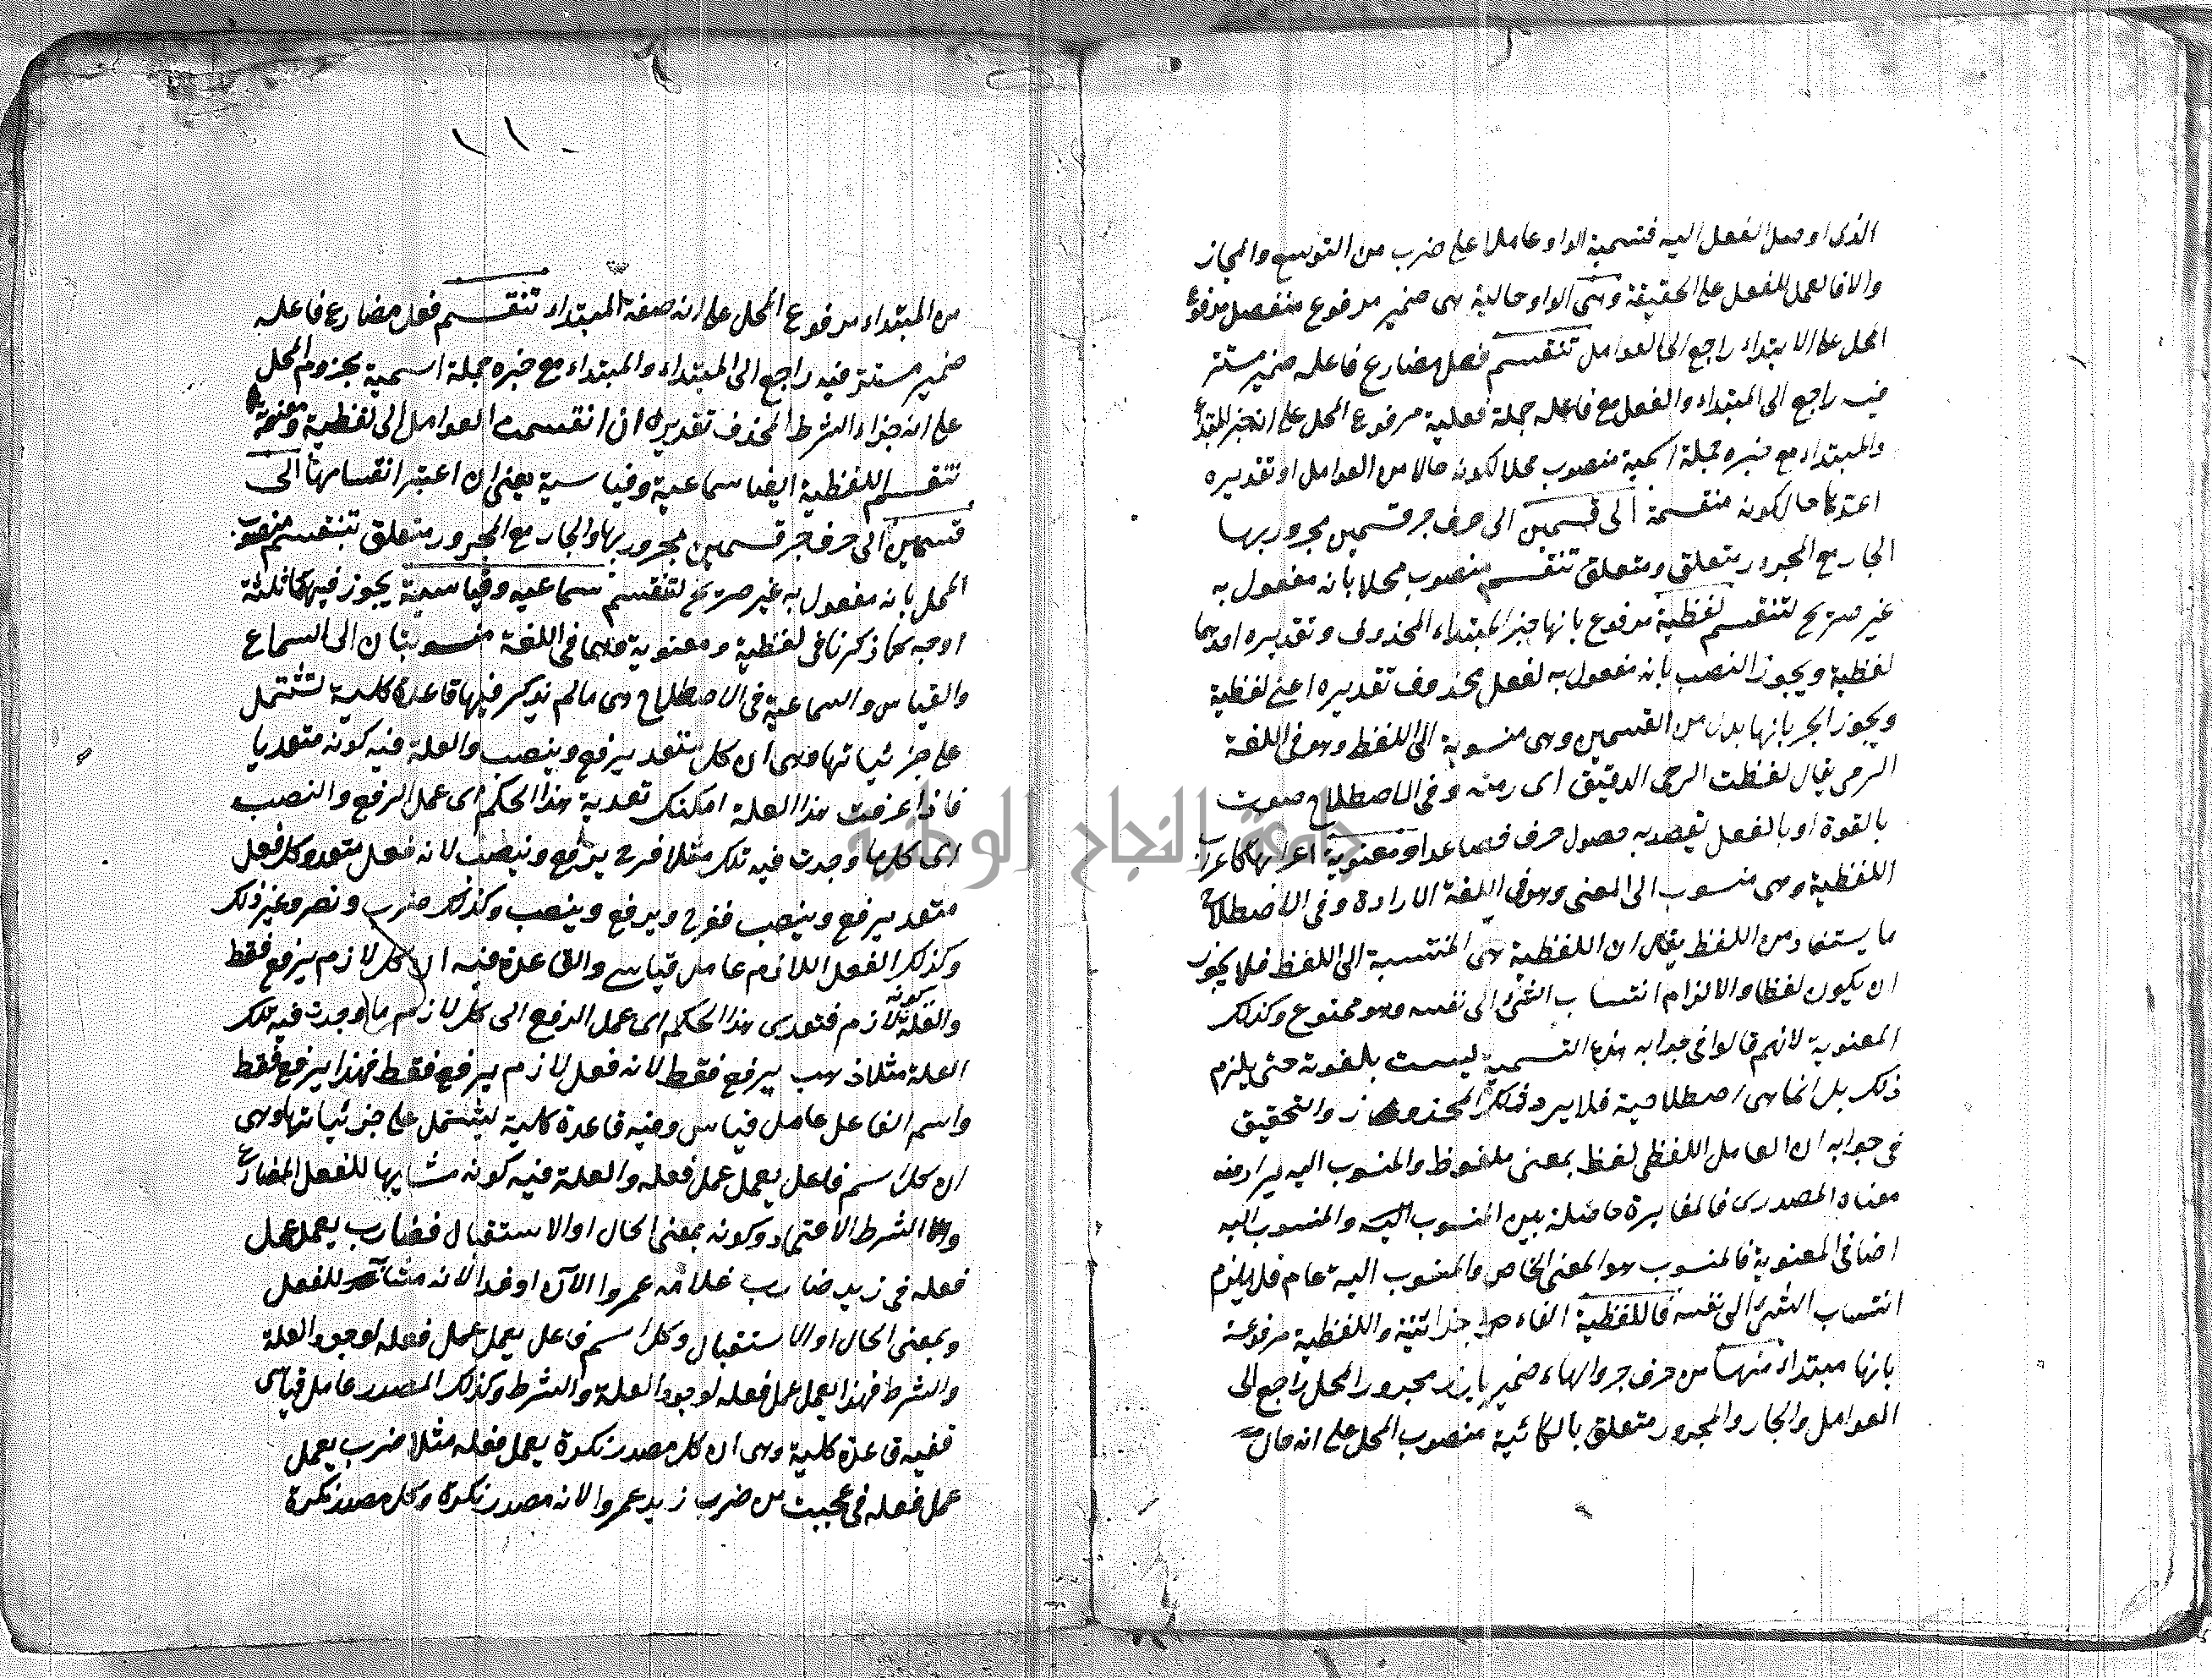 الذى اوصل الفعل اليه فتسمية الواو عاملا على ضرب من التوسع والمجاز
والا فالعمل للفعل على الحقيقة وهى الواو حالية هى ضمير مرفوع منفصل مرفوع
المحل على الابتداء راجع الى العوامل تنقسم فعل مضارع فاعله ضمير مستتر
فيه راجع الى المبتداء والفعل مع فاعله جملة فعلية مرفوع المحل على انه خبر المبتدأ
والمبتداء مع خبره جملة اسمية منصوب محلا لكونه حالا من العوامل او تقديره
حال كونه منقسمة الى قسمين الى حرف جر قسمين مجرور بها
الجار مع المجرور متعلق ومتعلق تنقسم منصوب محلا بانه مفعول به
غير صريح لتنقسم لفظية مرفوع بانها خبر المبتداء المحذوف وتقديره احدهما
لفظية ويجوز النصب بانه مفعول به لفعل محذوف تقديره اعنى لفظية
ويجوز الجر بانها بدل من القسمين وهى منسوبة الى اللفظ وهو فى اللغة
الرمى يقال لفظت الرحى الدقيق اى رمته وفى الاصطلاح صوت
بالقوة او بالفعل يقصد به حصول حرف فصاعدا ومعنوية اعرابها كاعراب
اللفظية وهى منسوب الى المعنى وهو فى اللغة الارادة وفى الاصطلاح
ما يستفاد من اللفظ يقال ان اللفظية هى المنتسبة الى اللفظ فلا يجوز
ان يكون لفظا والا لزم انتساب الشئ الى نفسه وهو ممنوع وكذلك
المعنوية لانهم قالوا فى جوابه هذه التسمية ليست بلغوية حتى يلزم
ذلك بل انما هى اصطلاحية فلا يرد ذلك المحذور والتحقيق
فى جوابه ان العامل اللفظى لفظ بمعنى ملفوظ والمنسوب اليه يراد منه
معناه المصدرى فالمغايرة حاصلة بين المنسوب اليه والمنسوب اليه
اضا فى المعنوية فالمنسوب هو المعنى الخاص والمنسوب اليه عام فلا يلزم
انتساب الشئ الى نفسه فاللفظية الفاء جزائية واللفظية مرفوعة
بانها مبتداء منها من حرف جر والهاء ضمير بارز مجرور المحل راجع الى
العوامل والجار والمجرور متعلق بالكائنية منصوب المحل على انه حال
١١
من المبتداء مرفوع المحل على انه صفة المبتداء تنقسم فعل مضارع فاعله
ضمير مستتر فيه راجع الى المبتداء والمبتداء مع خبره جملة اسمية مجزوم المحل
على انه جزاء الشرط المحذوف تقديره ان انقسمت العوامل الى لفظية ومعنوية
تنقسم اللفظية ايضا سماعية وقياسية يعنى ان اعتبر انقسامها الى
قسمين الى حرف جر قسمين مجرور بها والجار مع المجرور متعلق تنقسم منصوب
المحل بانه مفعول به غير صريح لتنقسم سماعيه وقياسية يجوز فيهما ثلثة
اوجه كما ذكرنا فى لفظية ومعنوية وهما فى اللغة منسوبتان الى السماع
والقياس والسماعية فى الاصطلاح هى ما لم يذكر فيها قاعدة كلية تشتمل
على جزئياتها وهى ان كل متعد يرفع وينصب والعلة فيه كونه متعديا
فاذا عرفت هذا العلة امكنك تعدية هذا الحكم اى عمل الرفع والنصب
الى كل ما وجدت فيه تلك مثلا فرح يرفع وينصب لانه فعل متعد وكل فعل
متعد يرفع وينصب ففرح ويرفع وينصب وكذلك ضرب ونصر وغير ذلك
وكذلك الفعل اللازم عامل قياسى والقاعدة فيه ان كل لازم يرفع فقط
والعلة كونه لازم فتعدى هذا الحكم اى عمل الرفع الى كل لازم ما وجدت فيه تلك
العلة مثلا ذهب يرفع فقط لانه فعل لازم يرفع فقط فهذا يرفع فقط
واسم الفاعل عامل قياس وفيه قاعدة كلية ليشتمل على جزئياتها وهى
ان كل اسم فاعل يعمل عمل فعله والعلة فيه كونه مشابها للفعل المضارع
الشرط الاعتماد وكونه بمعنى الحال او الاستقبال فضارب يعمل عمل
فعله فى زيد ضارب غلامه عمروا الآن او غدا لانه للفعل
وبمعنى الحال او الاستقبال وكل اسم فاعل يعمل عمل فعله لوجود العلة
والشرط فهذا يعمل عمل فعله لوجود العلة والشرط وكذلك المصدر عامل قياسى
ففيه قاعدة كلية وهى ان كل مصدر نكرة يعمل فعله مثلا ضرب يعمل
عمل فعله فى عجبت من ضرب زيد عمروا لانه مصدر نكرة وكل مصدر نكرة
جامعة النجاح الوطنية